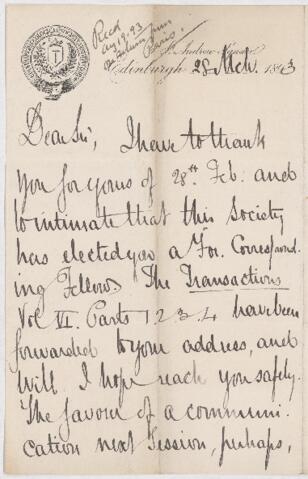 Recd
Aug 19. 93
on return from
Paris.
St. Andrew Square
Edinburgh 28 Mch. 1893
T
Dear Sir, I have to thank
you for yours of 28th Feb: and
to intimate that this Society
has elected you a For. Correspond-
ing Fellow. The Transactions
Vol VI. Parts 1. 2. 3. 4 have been
forwarded to your address, and
will I hope reach you safely.
The favour of a communi-
cation next Session, perhaps,